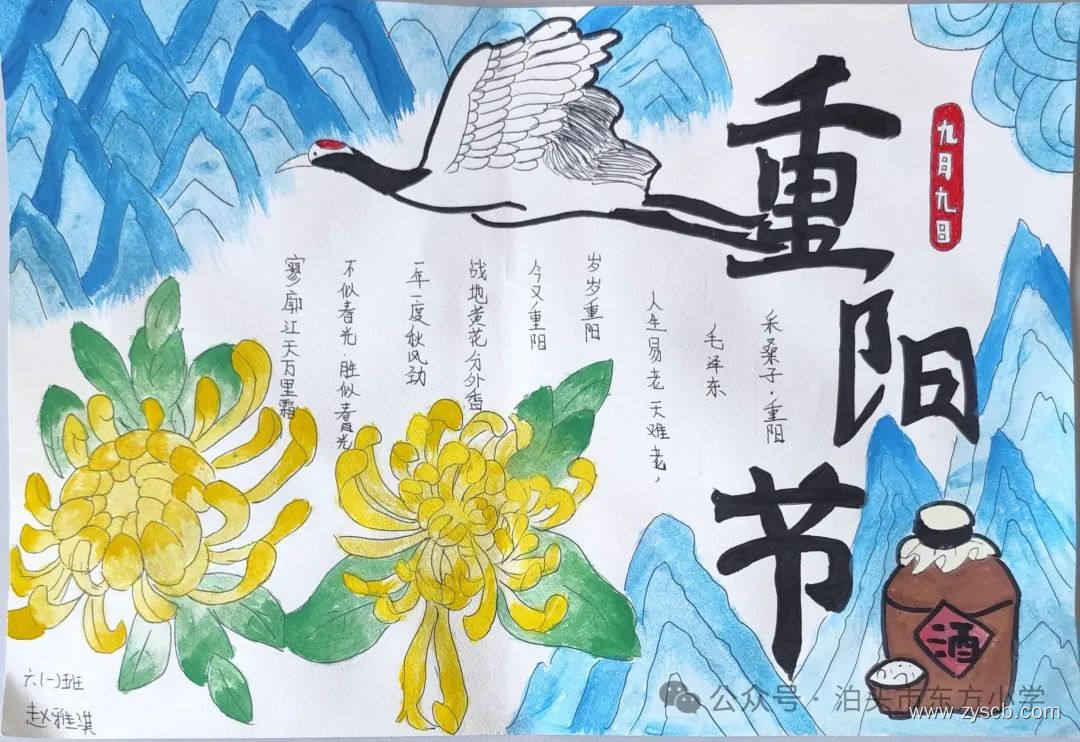 重阳节
九月九日
采桑子·重阳
毛泽东
人生易老天难老，
岁岁重阳
今又重阳
战地黄花分外香
一年一度秋风劲
不似春光·胜似春光
寥廓江天万里霜
酒
六(一)班
赵雅淇
公众号·泊头市东方小学
www.zyscb.com